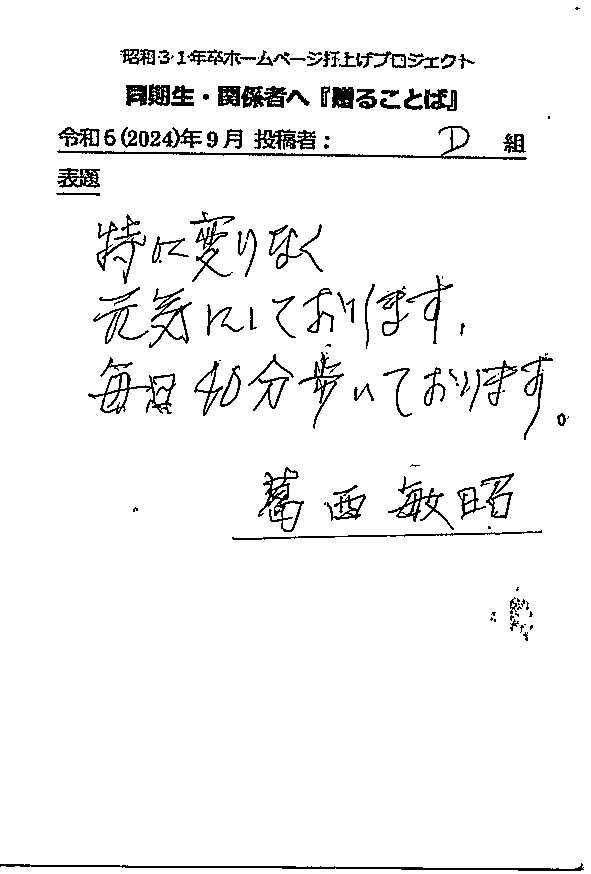 昭和31年卒ホームページ打上げプロジェクト
同期生・関係者へ『贈ることば』
令和6(2024)年9月 投稿者: D 組
表題
特に変りなく
元気にしております,
毎日40分歩いております。
葛西敏昭